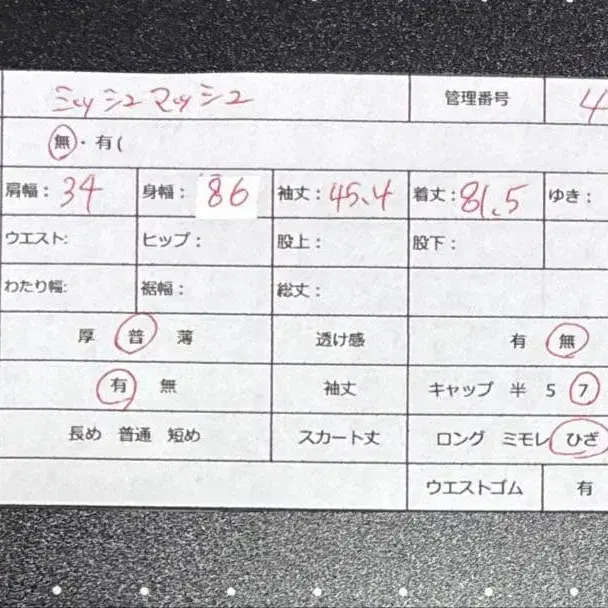 ミッシュマッシュ 管理番号 4
無・有(
肩幅: 34 身幅: 86 袖丈: 45.4 着丈: 81.5 ゆき:
ウエスト: ヒップ: 股上: 股下:
わたり幅: 裾幅: 総丈:
厚 普 薄 透け感 有 無
有 無 袖丈 キャップ 半 5 7
長め 普通 短め スカート丈 ロング ミモレ ひざ
ウエストゴム 有